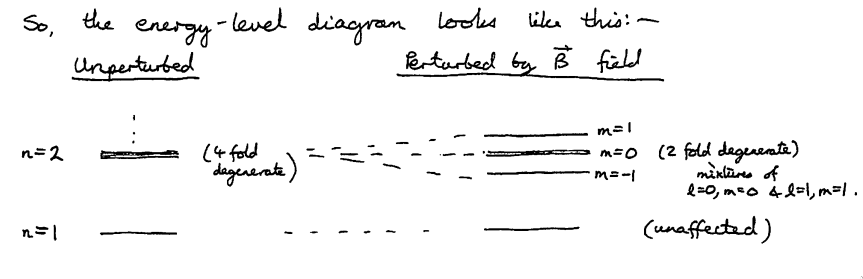 So, the energy-level diagram looks like this:-
Unperturbed
Perturbed by B⃗ field
n=2
(4 fold
degenerate)
m=1
m=0
m=-1
(2 fold degenerate)
mixtures of
l=0, m=0 & l=1, m=1.
n=1
(unaffected)